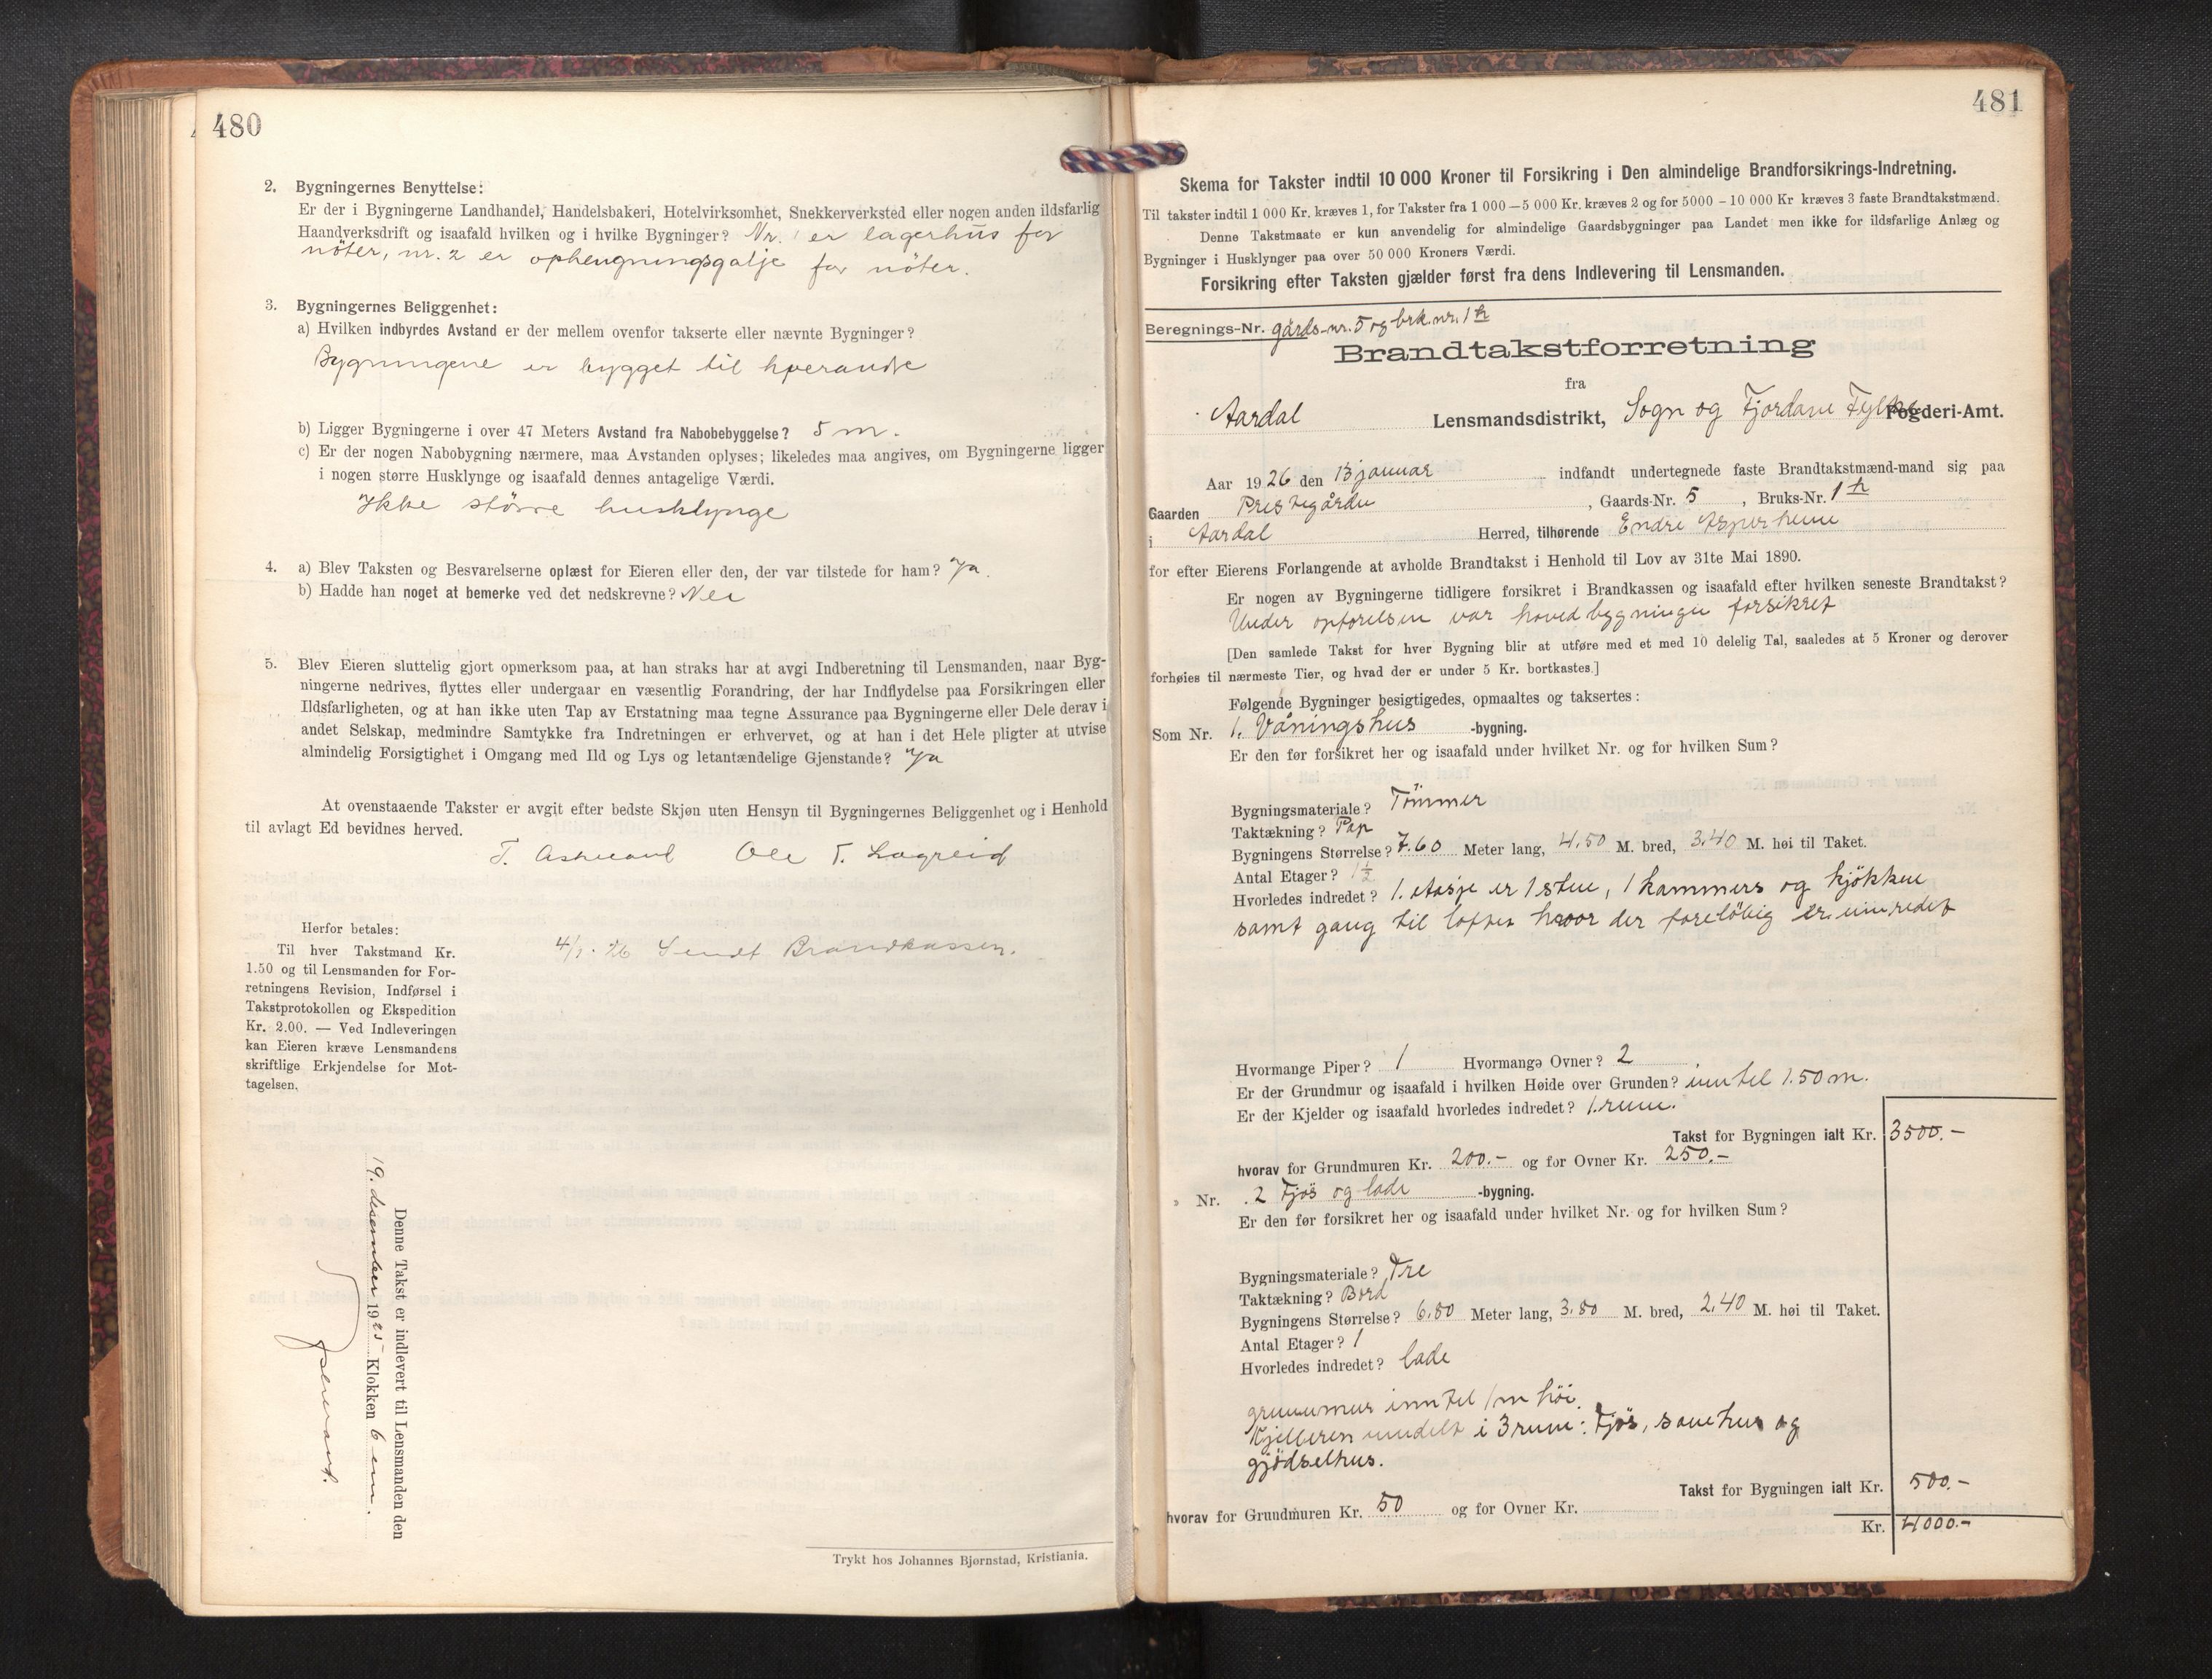 480
2. Bygningernes Benyttelse:
Er der i Bygningerne Landhandel, Handelsbakeri, Hotelvirksomhet, Snekkerverksted eller nogen anden ildsfarlig
Haandverksdrift og isaafald hvilken og i hvilke Bygninger? Nr. 1 er lagerhus for
nöter, nr. 2 er ophengningsgalje for nöter.
3. Bygningernes Beliggenhet:
a) Hvilken indbyrdes Avstand er der mellem ovenfor takserte eller nævnte Bygninger?
Bygningene er bygget til hverandre
b) Ligger Bygningerne i over 47 Meters Avstand fra Nabobebyggelse? 5 m.
c) Er der nogen Nabobygning nærmere, maa Avstanden oplyses; likeledes maa angives, om Bygningerne ligger
i nogen større Husklynge og isaafald dennes antagelige Værdi.
Ikke större husklynge
4. a) Blev Taksten og Besvarelserne oplæst for Eieren eller den, der var tilstede for ham? Ja.
b) Hadde han noget at bemerke ved det nedskrevne? Nei
5. Blev Eieren sluttelig gjort opmerksom paa, at han straks har at avgi Indberetning til Lensmanden, naar Byg-
ningerne nedrives, flyttes eller undergaar en væsentlig Forandring, der har Indflydelse paa Forsikringen eller
Ildsfarligheten, og at han ikke uten Tap av Erstatning maa tegne Assurance paa Bygningerne eller Dele derav i
andet Selskap, medmindre Samtykke fra Indretningen er erhvervet, og at han i det Hele pligter at utvise
almindelig Forsigtighet i Omgang med Ild og Lys og letantændelige Gjenstande? Ja
At ovenstaaende Takster er avgit efter bedste Skjøn uten Hensyn til Bygningernes Beliggenhet og i Henhold
til avlagt Ed bevidnes herved.
T. Ole T. Lægreid
Herfor betales:
Til hver Takstmand Kr.
1.50 og til Lensmanden for For-
retningens Revision, Indførsel i
Takstprotokollen og Ekspedition
Kr. 2.00. — Ved Indleveringen
kan Eieren kræve Lensmandens
skriftlige Erkjendelse for Mot-
tagelsen.
4/1. 26 Sendt Brandkassen.
Denne Takst er indlevert til Lensmanden den
19. desember 1925 Klokken 6 em.
Trykt hos Johannes Bjørnstad, Kristiania.
481
Skema for Takster indtil 10 000 Kroner til Forsikring i Den almindelige Brandforsikrings-Indretning.
Til takster indtil 1 000 Kr. kræves 1, for Takster fra 1 000—5 000 Kr. kræves 2 og for 5000 – 10 000 Kr kræves 3 faste Brandtakstmænd.
Denne Takstmaate er kun anvendelig for almindelige Gaardsbygninger paa Landet men ikke for ildsfarlige Anlæg og
Bygninger i Husklynger paa over 50 000 Kroners Værdi.
Forsikring efter Taksten gjælder først fra dens Indlevering til Lensmanden.
Beregnings-Nr. gårds-nr. 5 og brk. nr. 1
Brandtakstforretning
fra
Aardal Lensmandsdistrikt, Sogn og Fjordane Fylke Fogderi-Amt.
Aar 1926 den 13 januar indfandt undertegnede faste Brandtakstmænd-mand sig paa
Gaarden Prestegården, Gaards-Nr. 5, Bruks-Nr. 1
i Aardal Herred, tilhørende Endre Asperheim
for efter Eierens Forlangende at avholde Brandtakst i Henhold til Lov av 31te Mai 1890.
Er nogen av Bygningerne tidligere forsikret i Brandkassen og isaafald efter hvilken seneste Brandtakst?
Under opförelsen var hovedbygningen forsikret
[Den samlede Takst for hver Bygning blir at utføre med et med 10 delelig Tal, saaledes at 5 Kroner og derover
forhøies til nærmeste Tier, og hvad der er under 5 Kr. bortkastes.]
Følgende Bygninger besigtigedes, opmaaltes og taksertes:
Som Nr. 1. Våningshus -bygning.
Er den før forsikret her og isaafald under hvilket Nr. og for hvilken Sum?
Bygningsmateriale? Tömmer
Taktækning? Pap
Bygningens Størrelse? 7.60 Meter lang, 4.50 M. bred, 3.40 M. høi til Taket.
Antal Etager? 1½
Hvorledes indredet? 1. etasje er 1 stue, 1 kammers og kjökken
samt gang til loftet hvor der foreløbig er uinredet
Hvormange Piper? 1 Hvormange Ovner? 2
Er der Grundmur og isaafald i hvilken Høide over Grunden? inntil 1.50 m.
Er der Kjelder og isaafald hvorledes indredet? 1. rum.
Takst for Bygningen ialt Kr. 3500.-
hvorav for Grundmuren Kr. 200.- og for Ovner Kr. 250.-
» Nr. 2 Fjös og lade -bygning.
Er den før forsikret her og isaafald under hvilket Nr. og for hvilken Sum?
Bygningsmateriale? Tre
Taktækning? Bord
Bygningens Størrelse? 6.80 Meter lang, 3.80 M. bred, 2.40 M. høi til Taket.
Antal Etager? 1
Hvorledes indredet? lade
grunnmur inntil 1 m höi.
Kjelleren inndelt i 3 rum: Fjös, sauehus og
gjödselhus.
Takst for Bygningen ialt Kr. 500.-
hvorav for Grundmuren Kr. 50 og for Ovner Kr.
Kr. 4000.-